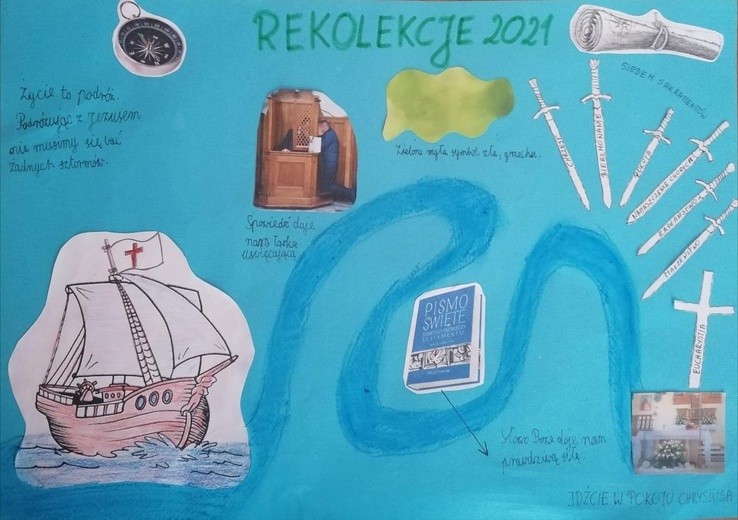 REKOLEKCJE 2021
Życie to podróż.
Podróżując z Jezusem
nie musimy się bać
żadnych sztormów.
SIEDEM SAKRAMENTÓW
Zielona mgła symbol zła, grzechu.
CHRZEST
BIERZMOWANIE
POKUTA
NAMASZCZENIE CHORYCH
KAPŁAŃSTWO
MAŁŻEŃSTWO
EUCHARYSTIA
Spowiedź daje
nam łaskę
uświęcającą
PISMO
ŚWIĘTE
TESTAMENTU
Słowo Boże daje nam
prawdziwą siłę
IDŹCIE W POKOJU CHRYSTUSA